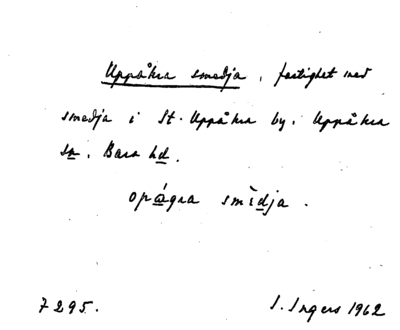 Uppåkra smedja, fastighet med
smedja i St. Uppåkra by, Uppåkra
sn, Bara hd.
opágra smìdja.
7295. I. Ingers 1962